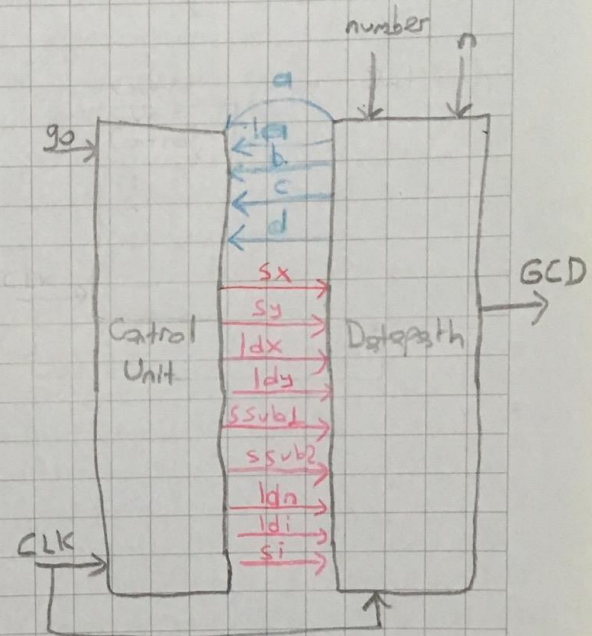 number
n
a
go
b
c
d
GCD
sx
sy
Control
Unit
Datapath
ldx
ldy
ssub1
ssub2
ldn
ldi
si
CLK